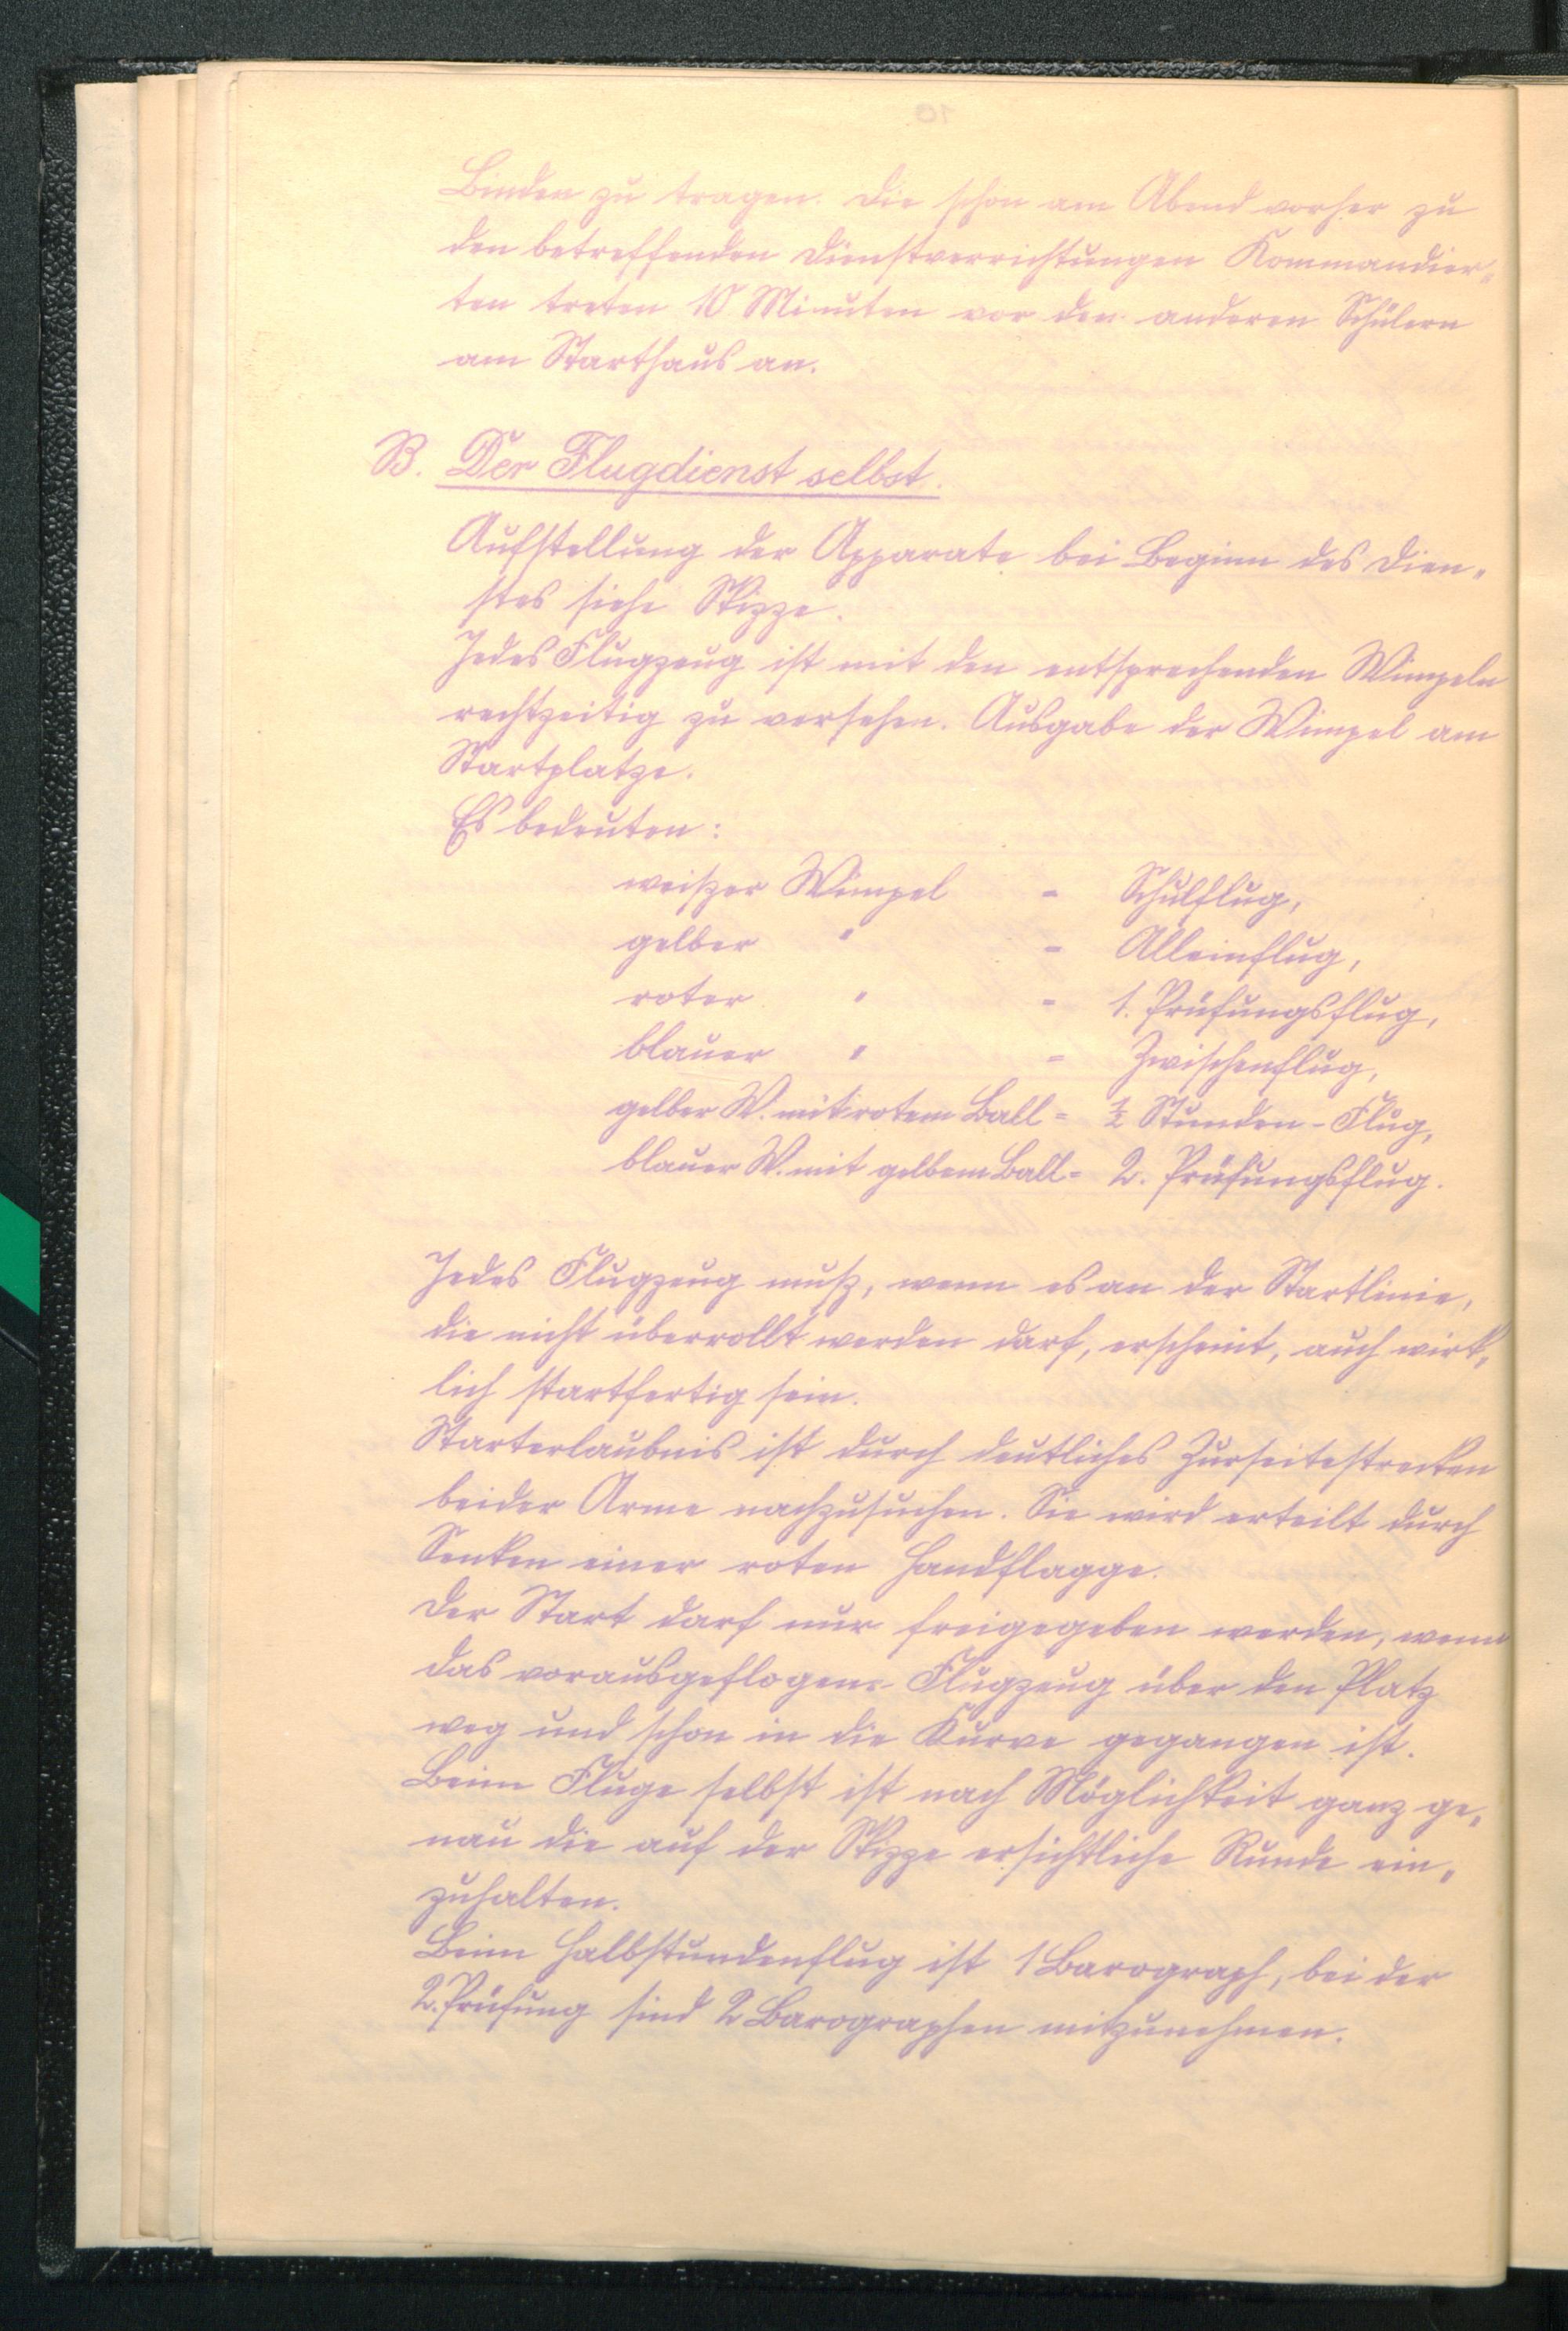 Binden zu tragen. Die schon am Abend vorher zu
den betreffenden Dienstverrichtungen Kommandier-
ten treten 10 Minuten vor den anderen Schülern
am Starthaus an.
B. Der Flugdienst selbst.
Aufstellung der Apparate bei Beginn des Dien-
stes siehe Skizze.
Jedes Flugzeug ist mit den entsprechenden Wimpeln
rechtzeitig zu versehen. Ausgabe der Wimpel am
Startplatze.
Es bedeuten:
weißer Wimpel = Schulflug,
gelber " = Alleinflug,
roter " = 1. Prüfungsflug,
blauer " = Zwischenflug,
gelber W. mit rotem Ball = ½ Stunden-Flug,
blauer W. mit gelbem Ball = 2. Prüfungsflug.
Jedes Flugzeug muß, wenn es an der Startlinie,
die nicht überrollt werden darf, erscheint, auch wirk-
lich startfertig sein.
Starterlaubnis ist durch deutliches Zurseitestrecken
beider Arme nachzusuchen. Sie wird erteilt durch
Senken einer roten Handflagge.
Der Start darf nur freigegeben werden, wenn
das vorausgeflogene Flugzeug über den Platz
weg und schon in die Kurve gegangen ist.
Beim Fluge selbst ist nach Möglichkeit ganz ge-
nau die auf der Skizze ersichtliche Runde ein-
zuhalten.
Beim Halbstundenflug ist 1 Barograph, bei der
2. Prüfung sind 2 Barographen mitzunehmen.